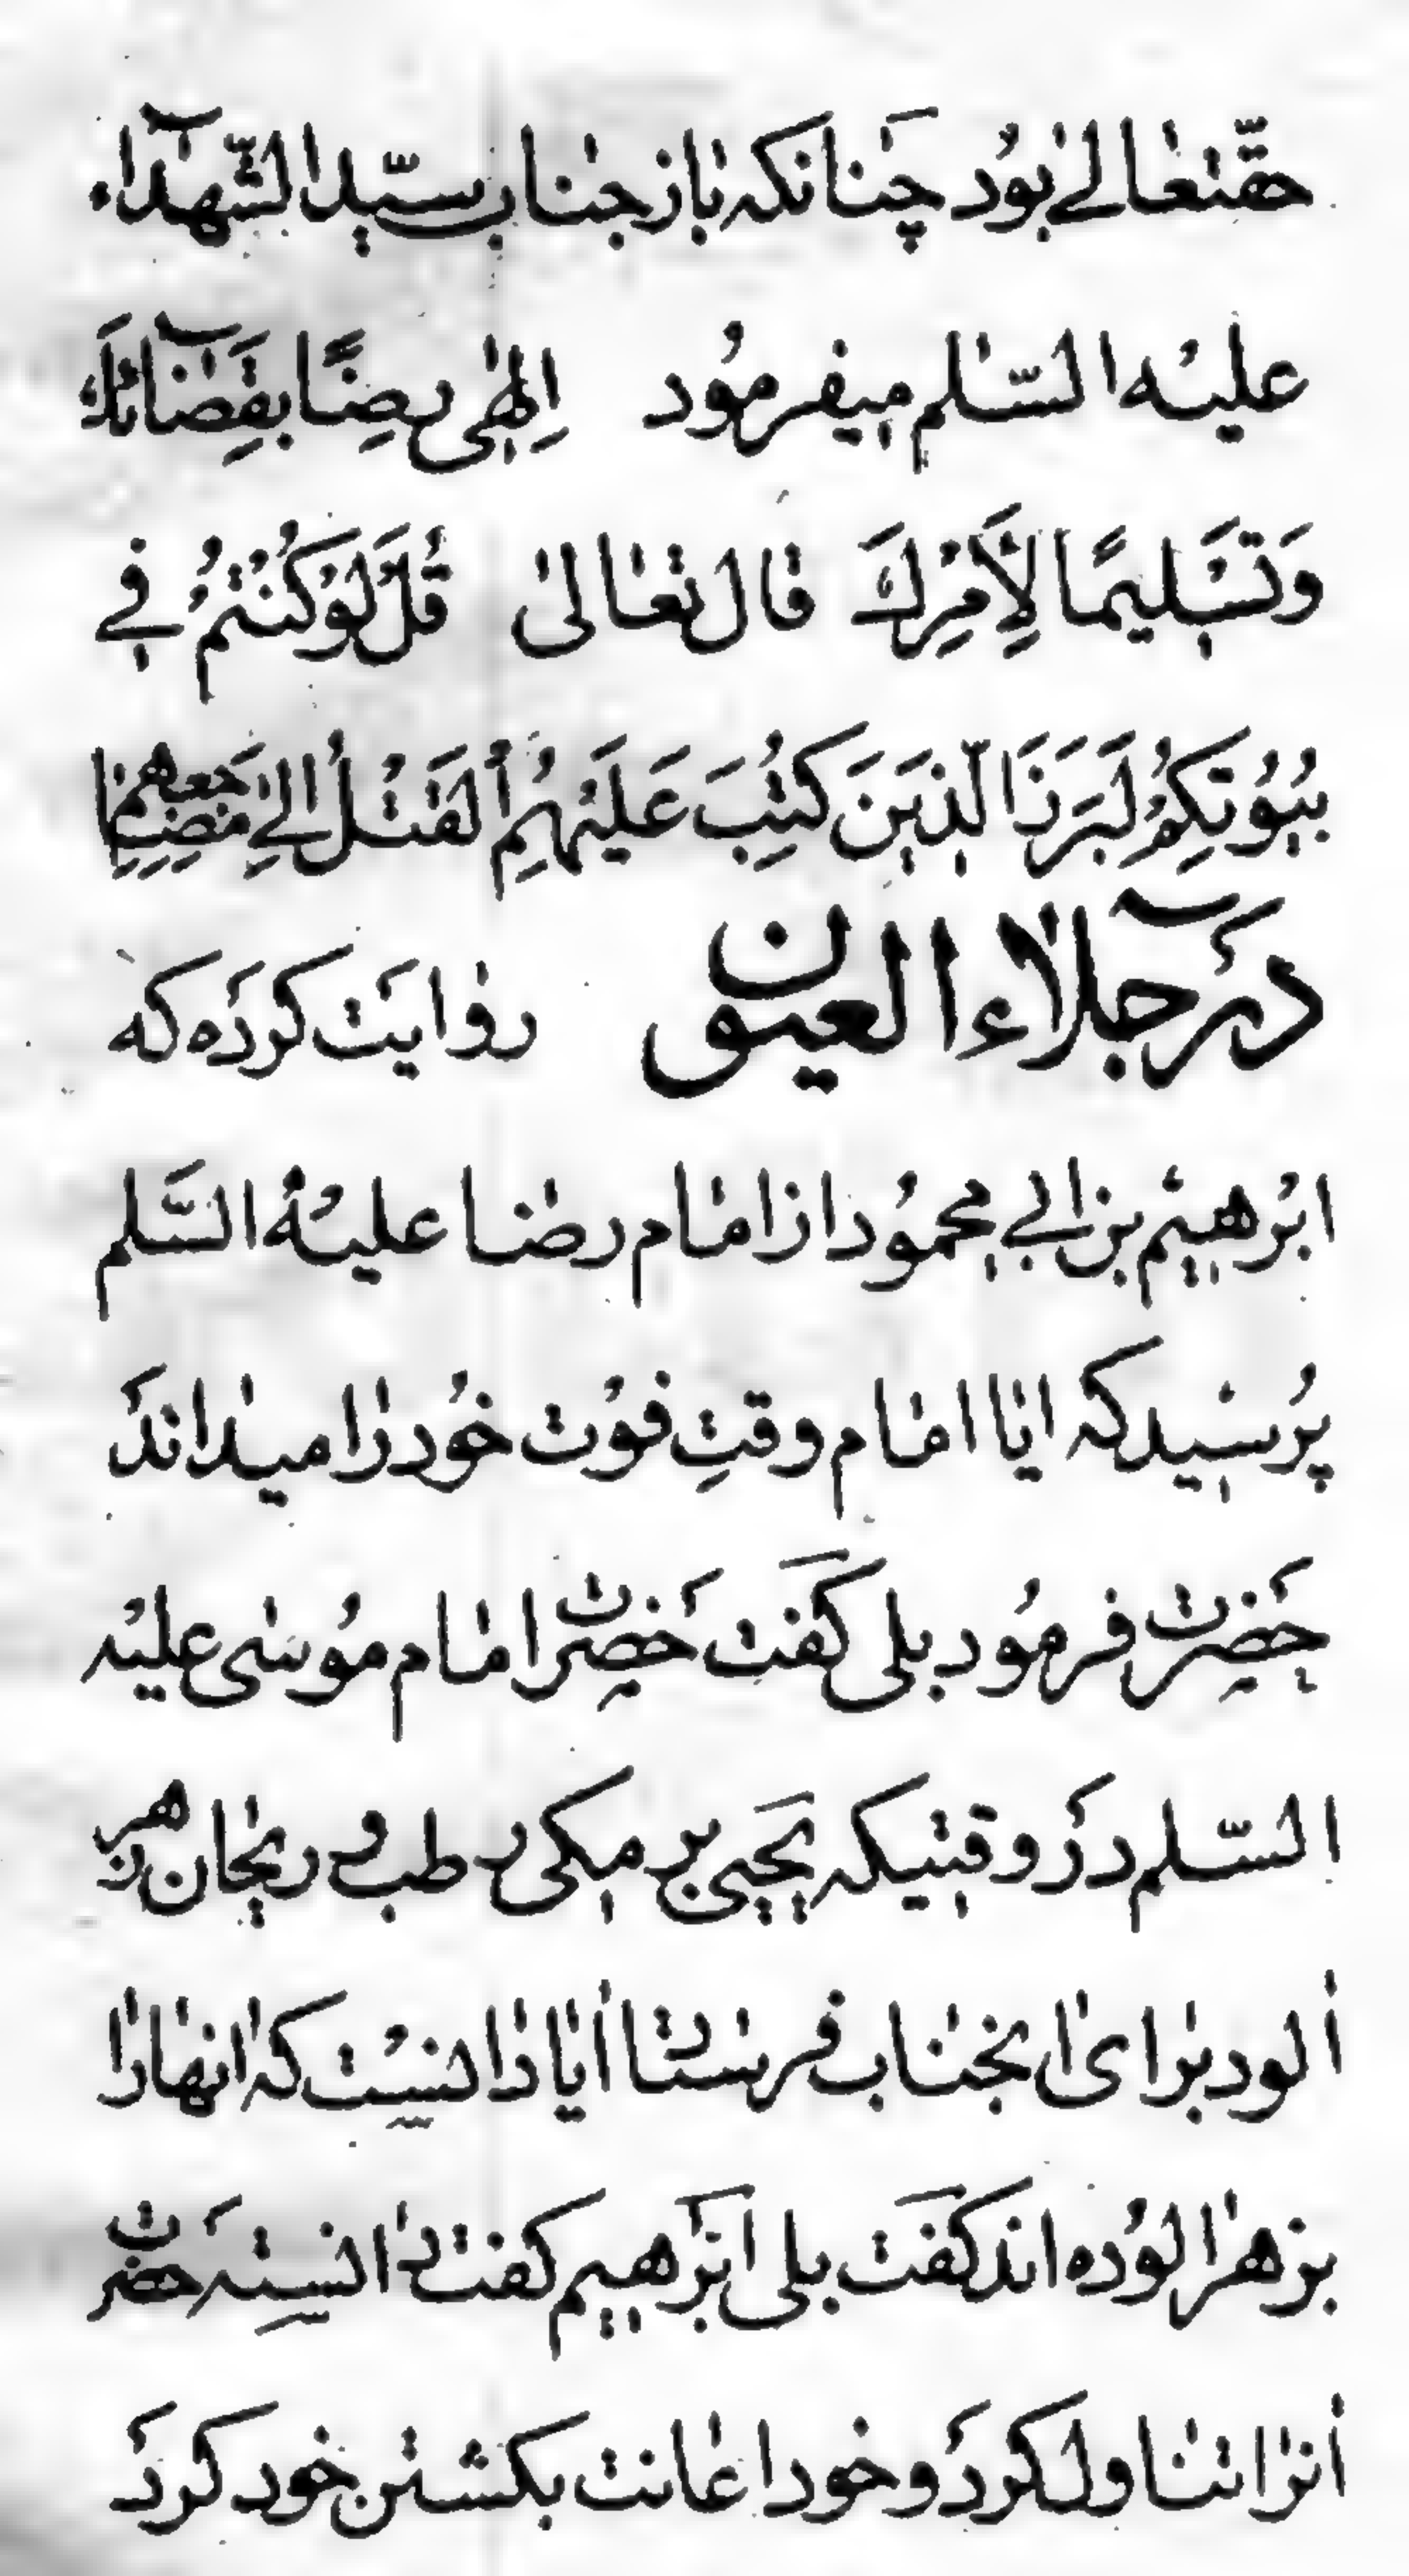 حقتعالے بود چنانکه باز جناب سیّد الشّهدآء
علیه السّلم میفرمود اِلهٰی رِضًا بِقَضآئِكَ
وَتَسْلیمًا لِاَمْرِكَ قال تعالی قُلْ لَوْ كُنْتُمْ فے
بُیُوتِكُمْ لَبَرَزَ الَّذینَ كُتِبَ عَلَیْهِمُ الْقَتْلُ اِلیٰ مَضاجِعِهِمْ
در جلآء العیون روایت کرده که
ابرهیم بن ابے محمود از امام رضا علیه السّلم
پرسید که ایا امام وقتِ فوت خود را میداند
حضرت فرمود بلی گفت حضرت امام موسی علیه
السّلم در وقتیکه یحیی برمکی رطب و ریحان زهر
الود برای انجناب فرستاد ایا دانست که انها را
بزهر الوده اند گفت بلی ابرهیم گفت دانسته حضرت
انرا تناول کرد و خود اعانت بکشتن خود کرد